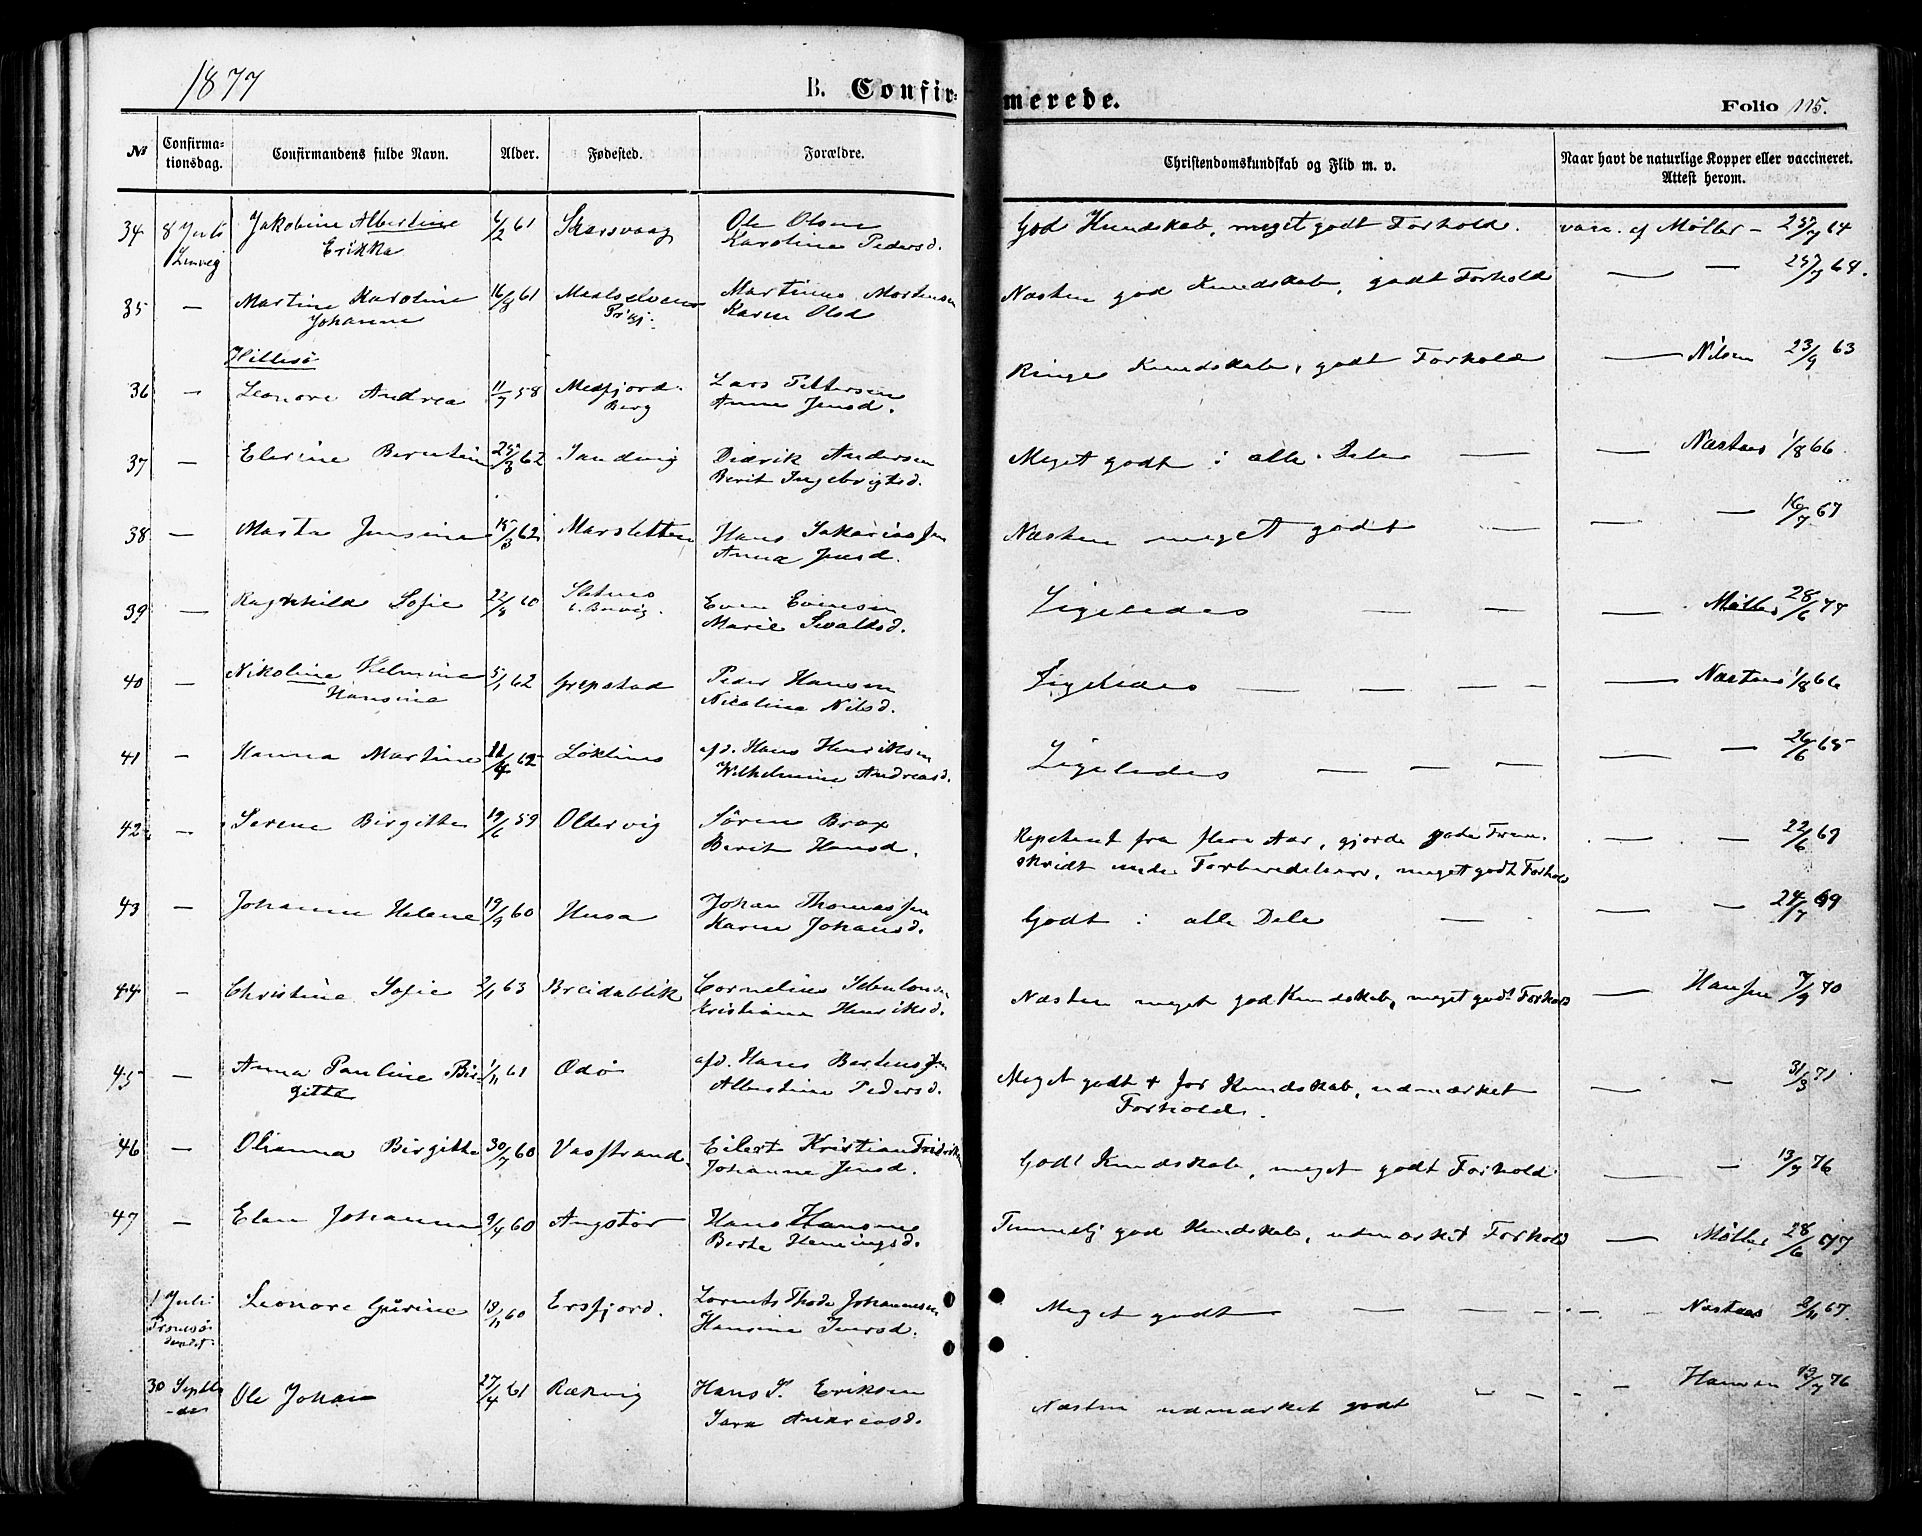 1877
B. Confir-
merede.
Folio 115.
No
Confirma-
tionsdag.
Confirmandens fulde Navn.
Alder.
Fødested.
Forældre.
Christendomskundskab og Flid m. v.
Naar havt de naturlige Kopper eller vaccineret.
Attest herom.
34 8 Juli Jakobine Albertine 6/2 61 Skarsvaag Ole Olsen God Kundskab, meget godt Forhold. vacc. af Møller - 25/7 64
Lenvig Erikka Karoline Pedersd.
35 — Martine Karoline 16/9 61 Maalselvens Martinus Mortensen Næsten god Kundskab, godt Forhold — — 25/7 64.
Johanne Prgj. Karen Olsd
Hillesø
36 — Leonore Andrea 11/7 58 Medfjord Lars Pettersen Ringe Kundskab, godt Forhold — Nilsen 23/9 63
Berg Anne Jensd.
37 — Elerine Berntine 25/3 62 Sandvig Didrik Andersen Meget godt i alle Dele — — Næstaas 1/8 66.
Berit Ingebrigtsd.
38 — Marta Jensine 15/3 62 Marsletten Hans Sakariassen Næsten meget godt — — — 16/7 67
Anna Jensd.
39 — Ragnhild Sofie 22/8 60 Sletnes Even Evensen Ligeledes — — — Møller 28/6 77
Marie Sivaltsd.
40 — Nikoline Helmine 5/1 62 Grepstad Peder Hansen Ligeledes — — — — — Næstaas 1/8 66
Hansine Nicoline Nilsd.
41 — Hanna Martine 11/4 62 Løktenes afd. Hans Henriksen Ligeledes — — — — — 26/6 65
Wilhelmine Andreasd.
42 — Serene Birgitte 19/6 59 Oldervig Sören Brox Repetent fra flere Aar, gjorde gode Frem- — — 22/6 67
Berit Hansd. skridt under Forberedelsen, meget godt Forhold
43 — Johanne Helene 19/9 60 Husa Johan Thomassen Godt i alle Dele — — — 24/7 69
Karen Johansd.
44 — Christine Sofie 2/1 63 Breidablik Cornelius Næsten meget god Kundskab, meget godt Forhold — Hansen 7/9 70
Kristiane Henriksd.
45 — Anna Pauline Bir- 1/11 61 Edø afd. Hans Bertheussen Meget godt + for Kundskab, udmærket — — 31/3 71
gitte Albertine Pedersd. Forhold.
46 — Olianna Birgitte 30/7 60 Vasstrand Eilert Kristian Fredriksen God Kundskab, meget godt Forhold — — 13/7 76
Johanne Jensd.
47 — Elen Johanna 9/4 60 Angstør Hans Hansen Temmelig god Kundskab, udmærket Forhold — Møller 28/6 77
Berte Hemingsd.
1 Juli Leonore Gurine 18/11 60 Ersfjord. Lornts Thode Johannesen Meget godt — — — — — Næstaas 2/11 67.
Tromsø- Hansine Iversd.
sundet
30 Septbr Ole Johan 27/4 61 Rækvig Hans P. Eriksen Næsten udmærket godt — — — — Hansen 13/7 76
Sara Andreasd.